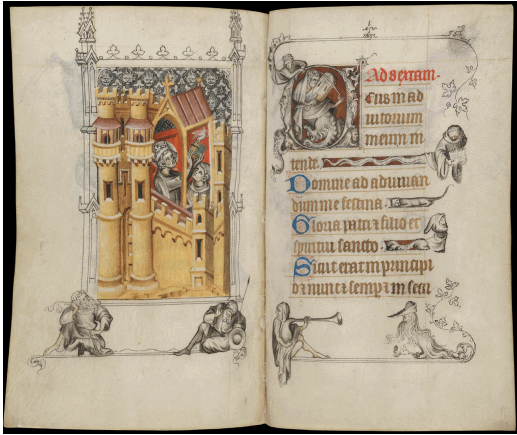 Ad sextam.
Deus in ad
iutorium
meum in
tende.
Domine ad adiuuan
dum me festina.
Gloria patri et filio et
spiritui sancto.
Sicut erat in principi
o et nunc et semper et in secu